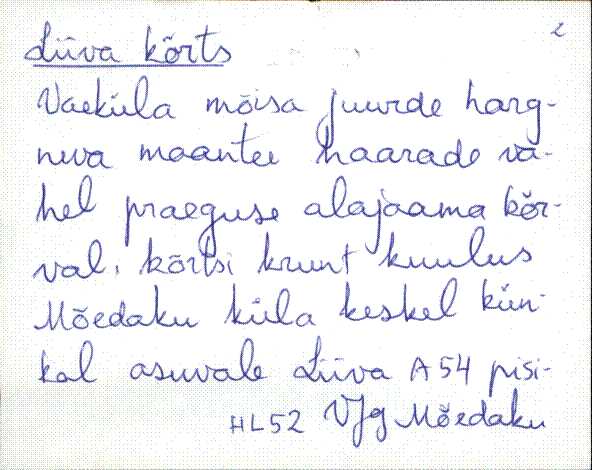 2
Liiva kõrts
Vaeküla mõisa juurde harg-
neva maantee haarade va-
hel praeguse alajaama kõr-
val. kõrtsi krunt kuulus
Mõedaku küla keskel kün-
kal asuvale Liiva A54 pisi-
HL52 VJg Mõedaku